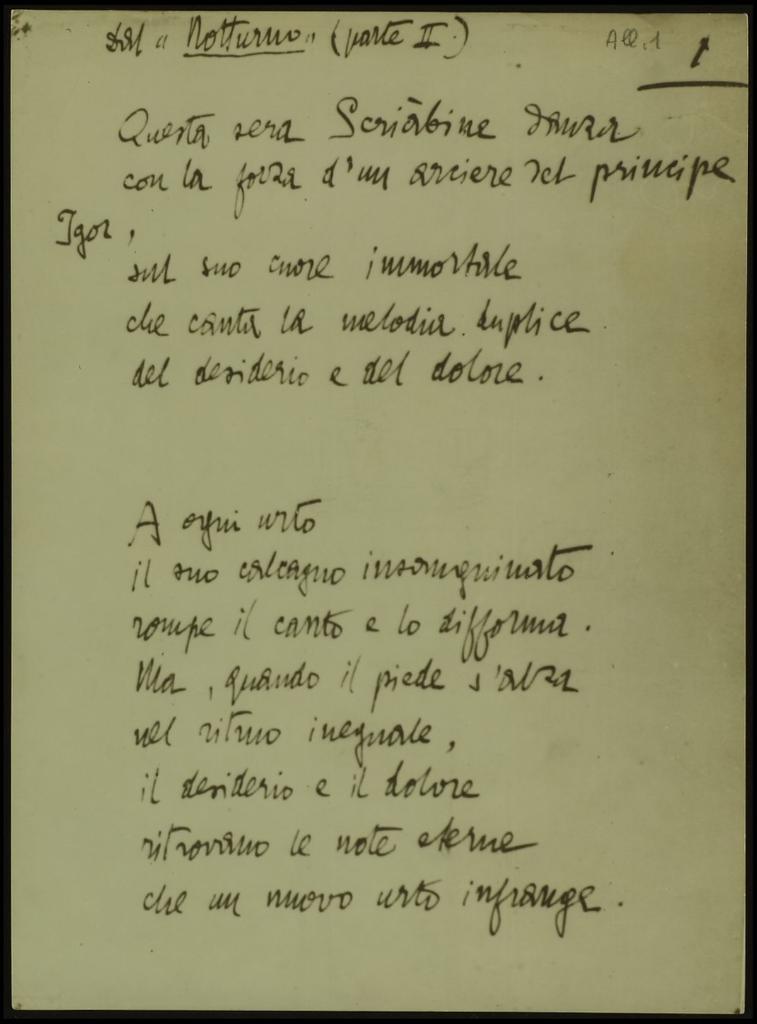 Dal "Notturno" (parte II.)
All. 1
1
Questa sera Scriàbine danza
con la forza d'un arciere del principe
Igor,
sul suo cuore immortale
che canta la melodia duplice
del desiderio e del dolore.
A ogni urto
il suo calcagno insanguinato
rompe il canto e lo difforma.
Ma, quando il piede s'alza
nel ritmo ineguale,
il desiderio e il dolore
ritrovano le note eterne
che un nuovo urto infrange.